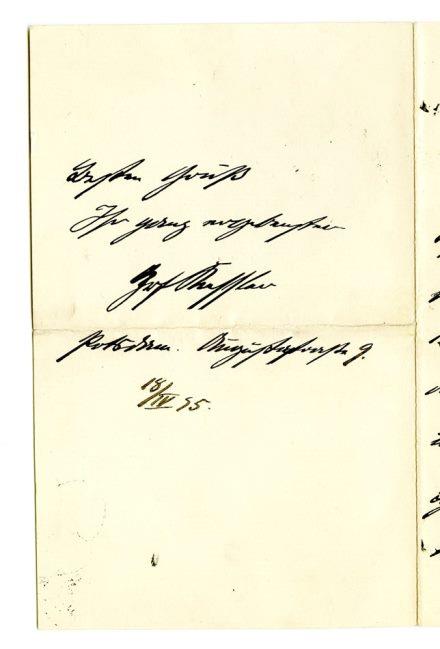 Besten Gruß
Ihr ganz ergebenster
Graf Kessler
Potsdam. Augustastrasse 9.
18/IV 95.